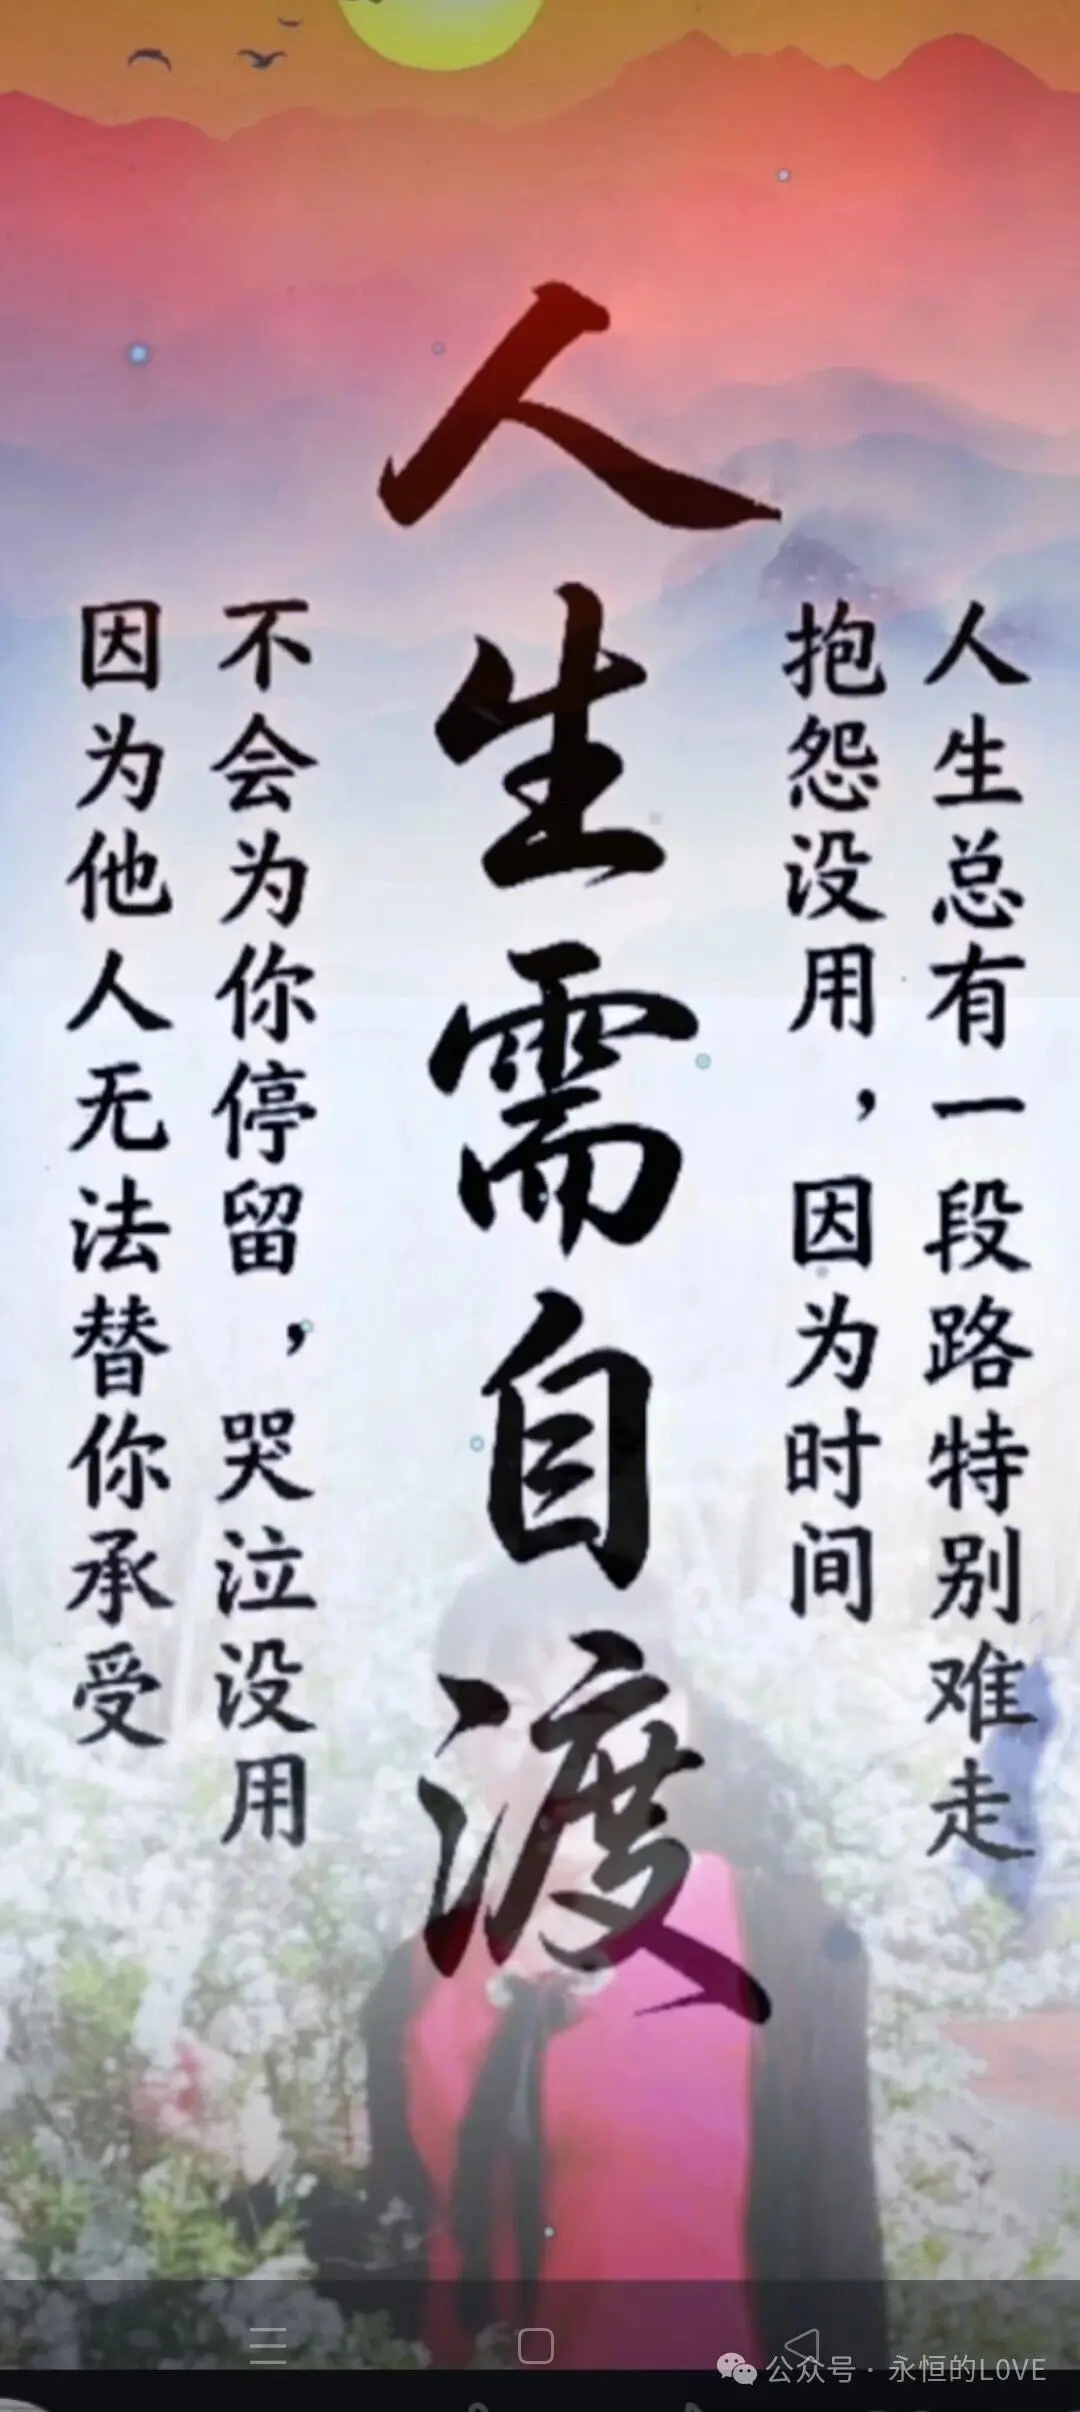 人生总有一段路特别难走
抱怨没用，因为时间
人生需自渡
不会为你停留，哭泣没用
因为他人无法替你承受
公众号·永恒的LOVE